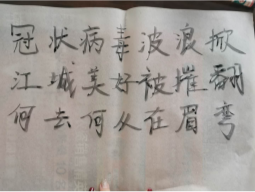 冠状病毒波浪掀
江城美好被摧翻
何去何从在眉弯